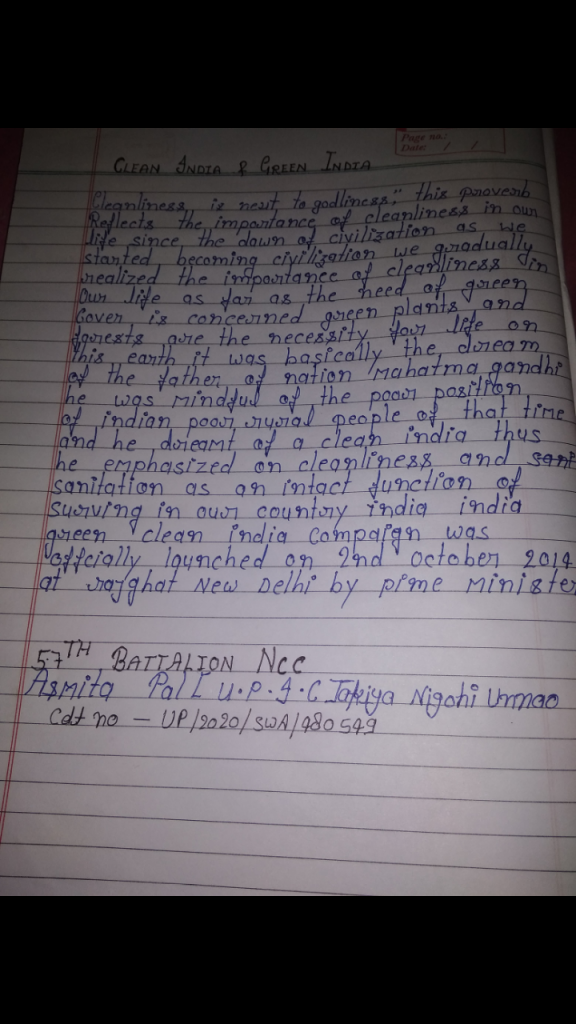 Page no.:
Date: / /
CLEAN INDIA & GREEN INDIA
Cleanliness is next to godliness," this proverb
Reflects the importance of cleanliness in our
life since the dawn of civilization as we
started becoming civilization we gradually
realized the importance of cleanliness in
Our life as far as the need of green
Cover is concerned green plants and
forests are the necessity for life on
this earth it was basically the dream
of the father of nation Mahatma gandhi
he was mindful of the poor position
of indian poor rural people of that time
and he dreamt of a clean india thus
he emphasized on cleanliness and
sanitation as an intact function of
surving in our country india india
green clean india compaign was
offcially launched on 2nd october 2014
at rajghat New Delhi by pime Minister
57TH BATTALION NCC
Asmita Pal U.P.I.C Takiya Nigohi Unnao
Cdt no - UP/2020/SWA/480549